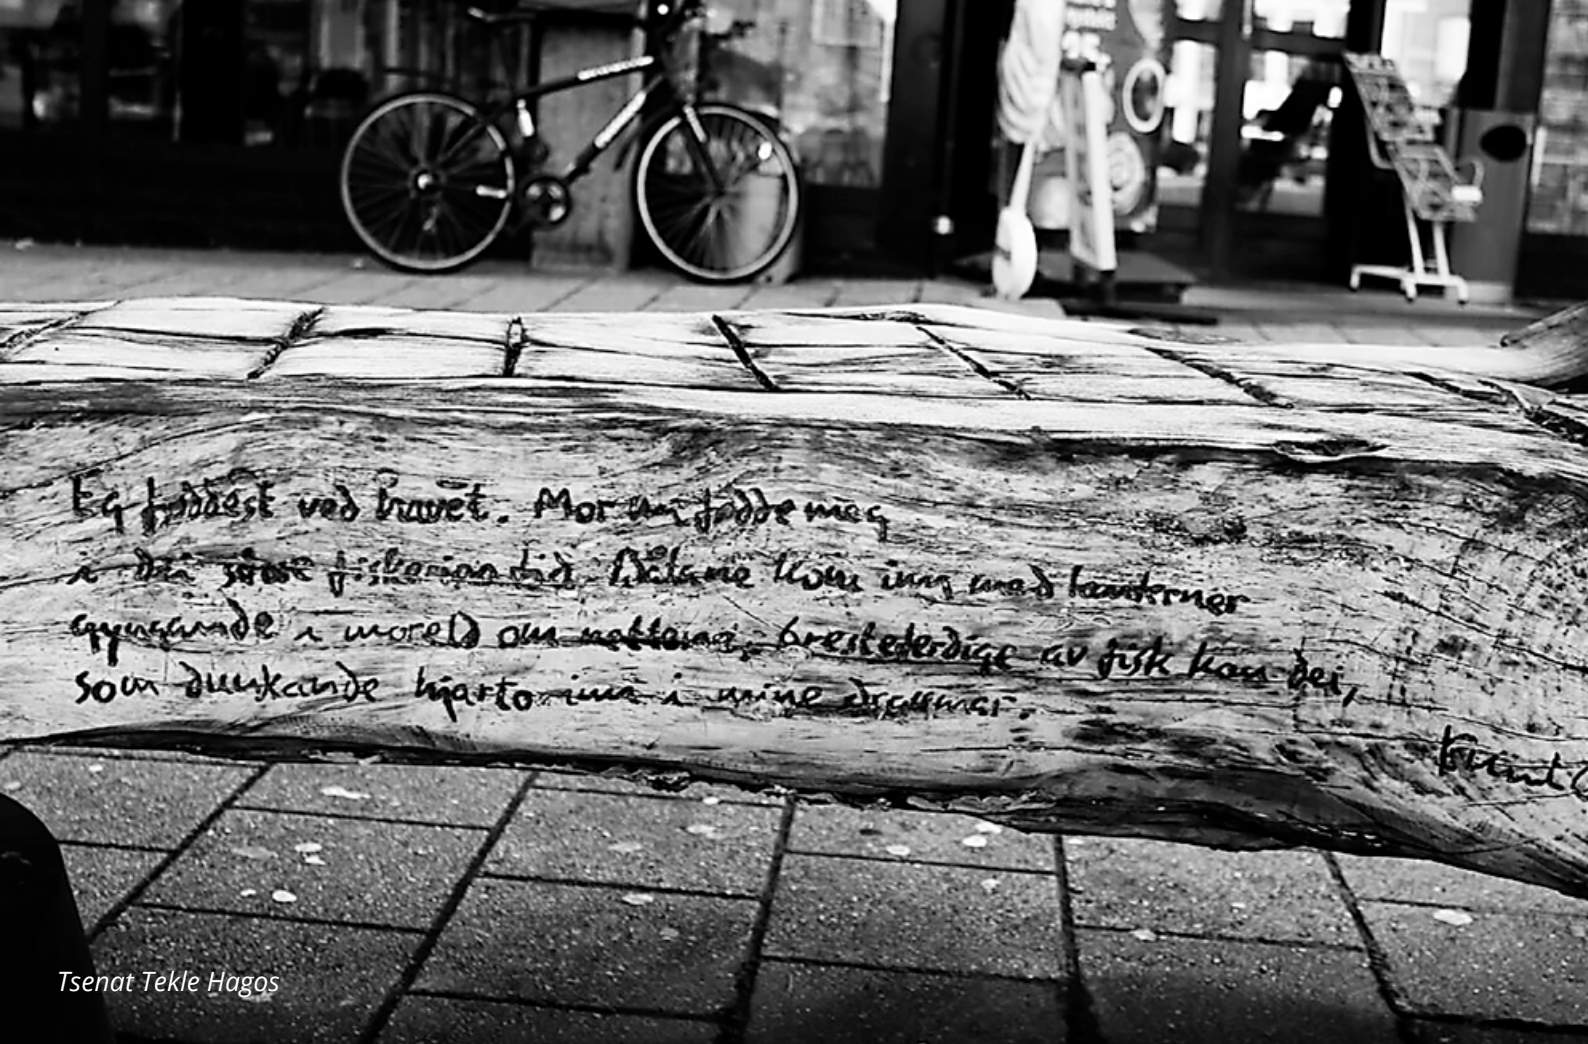 Eg føddest ved havet. Mor mi fødde meg
i dei fiskerian tid. Båtane kom inn med lanterner
gyngande i morell om nettene, bresteferdige av fisk kom dei,
som dunkande hjarto inn i mine draumar.
Tsenat Tekle Hagos